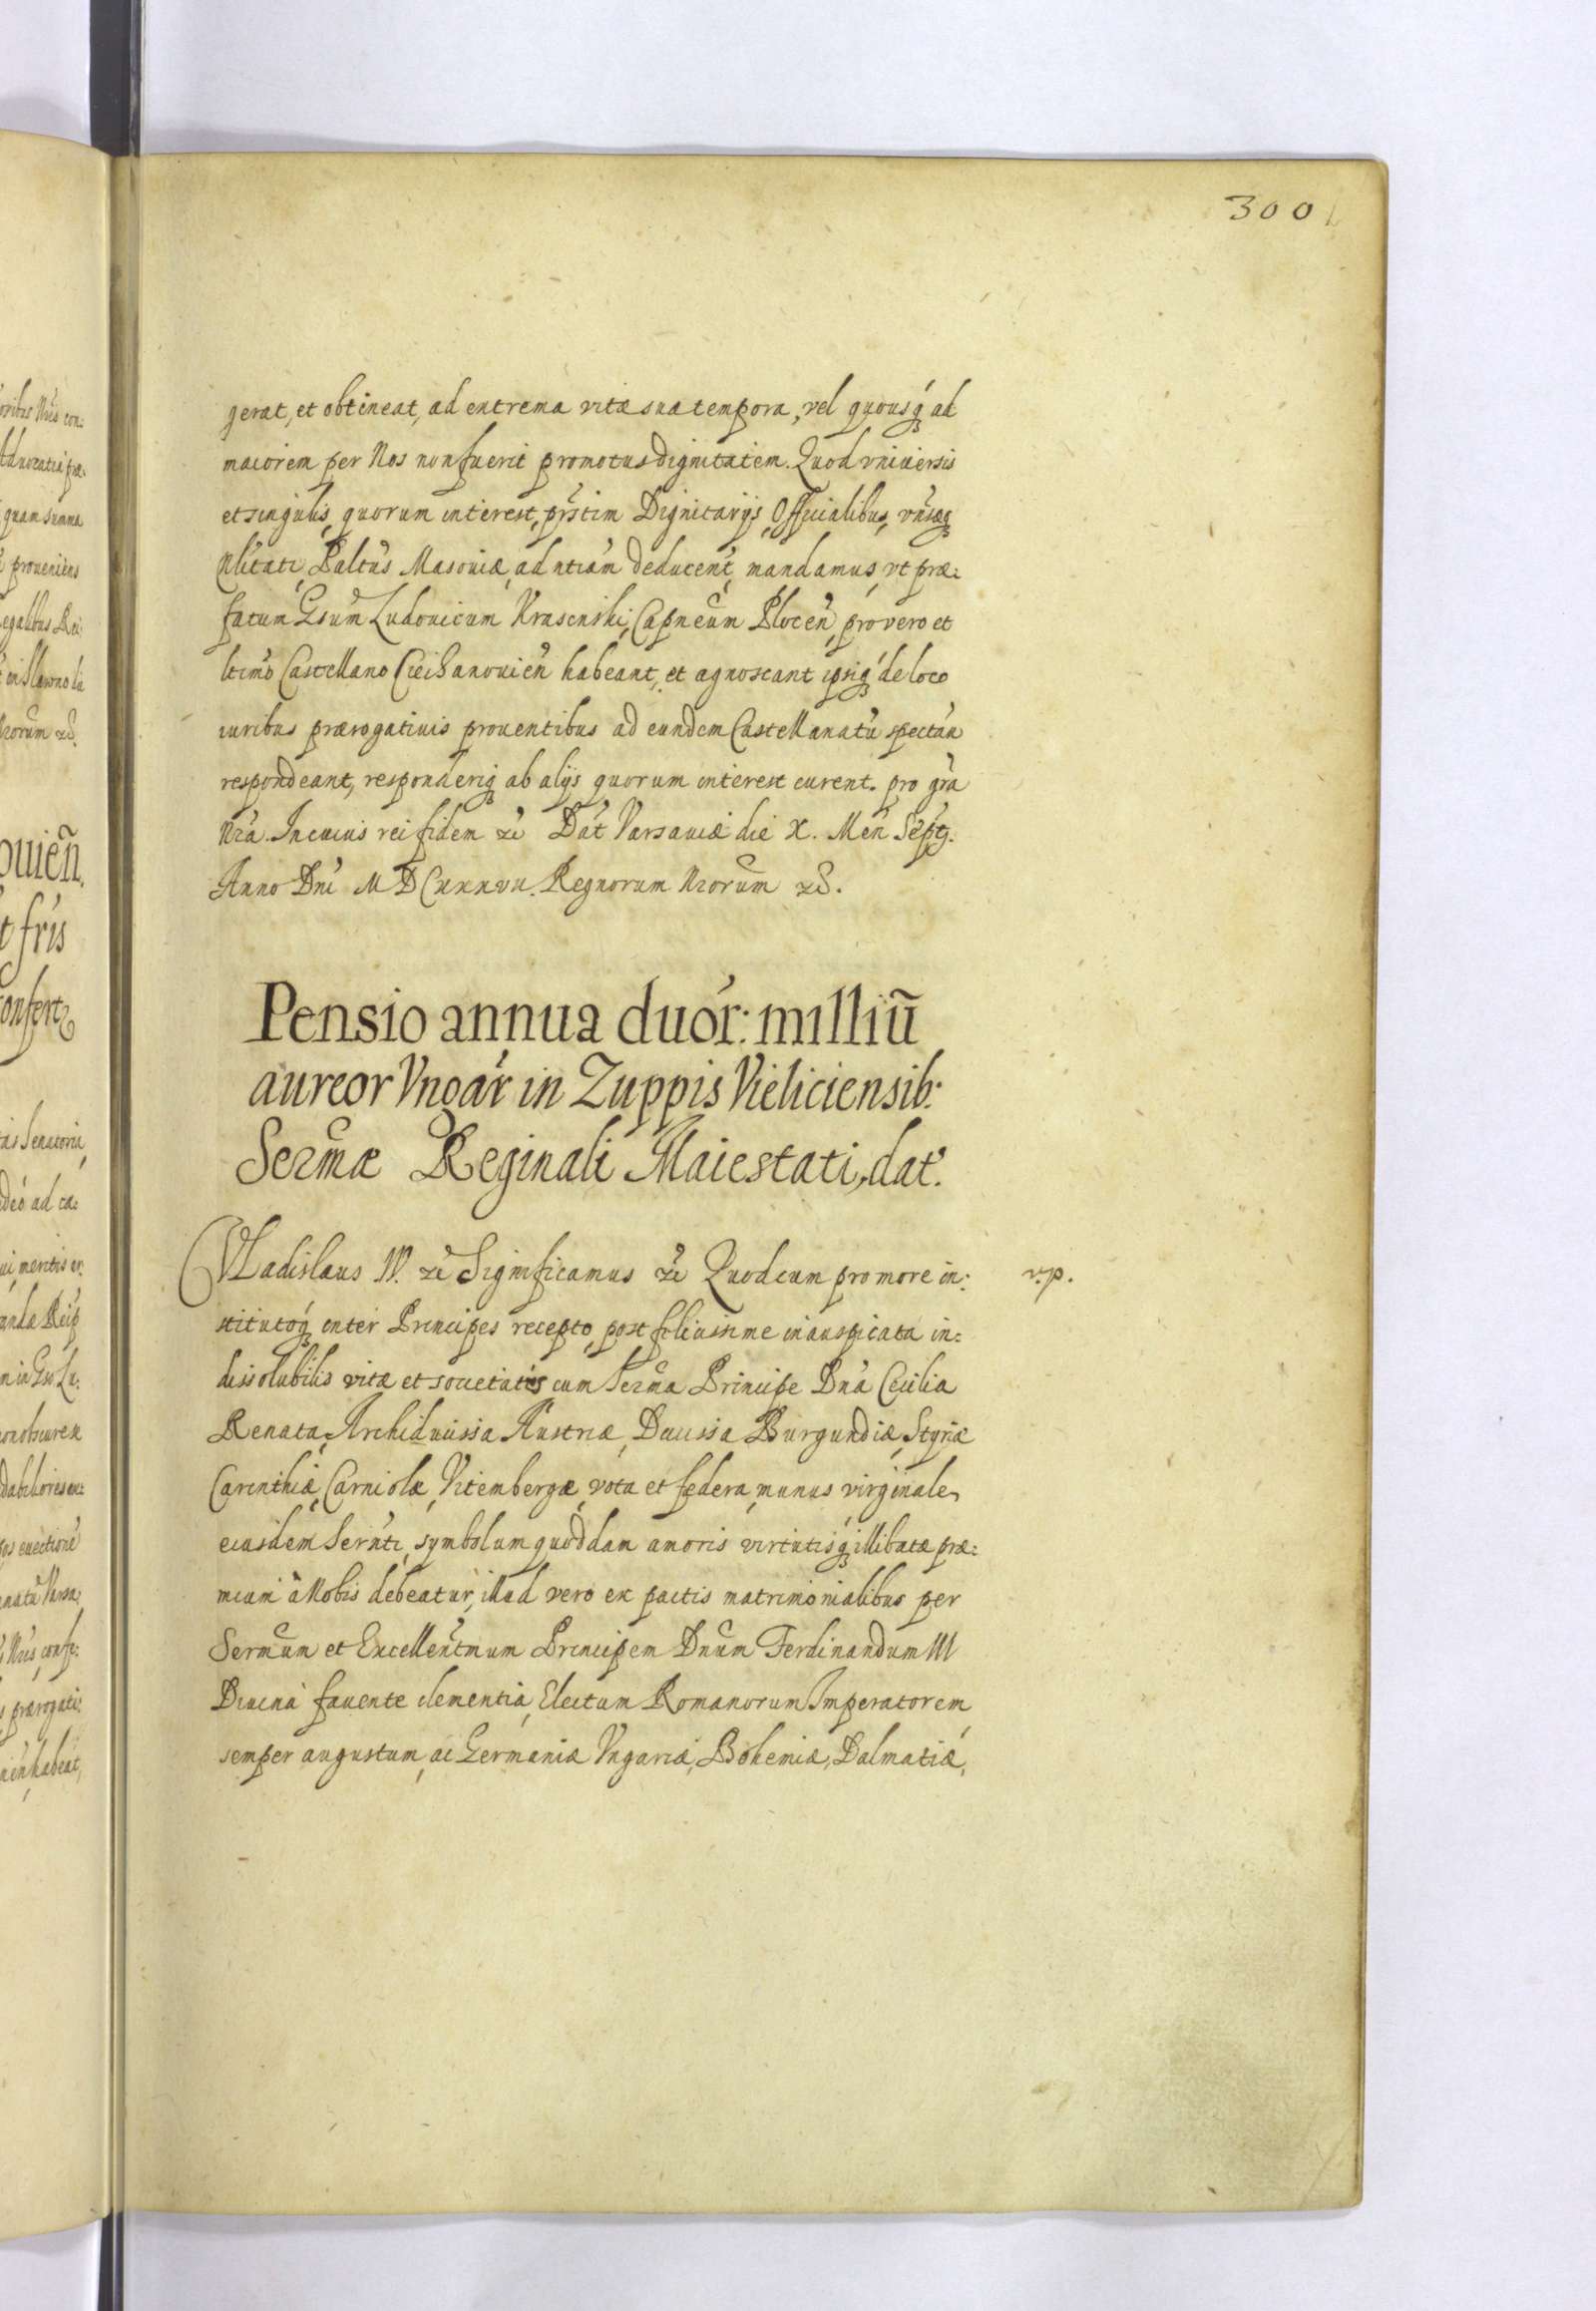 300
gerat, et obtineat, ad extrema vitæ suæ tempora, vel quousq́ ad
maiorem per Nos non fuerit promotus dignitatem. Quod vniuersis
et singulis, quorum interest, prs̃tim Dignitarijs, Officialibus, vnr̃sæq
Nlitati, Paltũs Masouiæ, ad ntiam̃ deducen̄t, mandamus, vt præ:
fatum Gsum̃ Ludouicum Krasinski, Capneum̃ Plocen̄, pro vero et
ltimõ Castellano Ciechanouien̄ habeant, et agnoscant ipsiq́ de loco
iuribus prærogatiuis prouentibus ad eundem Castellanatũ spectań
respondeant, responderiq ab alijs quorum interest curent. pro grã
Nrã. In cuius rei fidem etc̃ Dat́ Varsauiæ die X. Men̄ Sept̃.
Anno Dnĩ MDCxxxvii. Regnorum Nrorum̃ etc̃.
Pensio annua duoŕ: milliũ
aureor Vngaŕ in Zuppis Vieliciensib:
Serm̃æ Reginali Maiestati, dat́.
VLadislaus IV. etc̃ Significamus etc̃ Quod cum pro more in: v.p.
stitutoq́ inter Principes recepto, post felicissime inauspicata in:
dissolubilis vitæ et societatis cum Serm̃a Principe Dnã Cecilia
Renata, Archiducissa Austriæ, Ducissa Burgundiæ, Styriæ
Carinthiæ, Carniolæ, Vitembergæ, vota et fædera, munus virginale,
eiusdem Sernt̃i, symbolum quoddam amoris virtutisq́ illibatæ præ:
mium à Nobis debeatur, illud vero ex pactis matrimonialibus per
Sermum̃ et Excellen̄tmum Principem Dnum̃ Ferdinandum III
Diuina fauente clementia, Electum Romanorum Imperatorem
semper augustum, ac Germaniæ Vngariæ, Bohemiæ, Dalmatiæ,